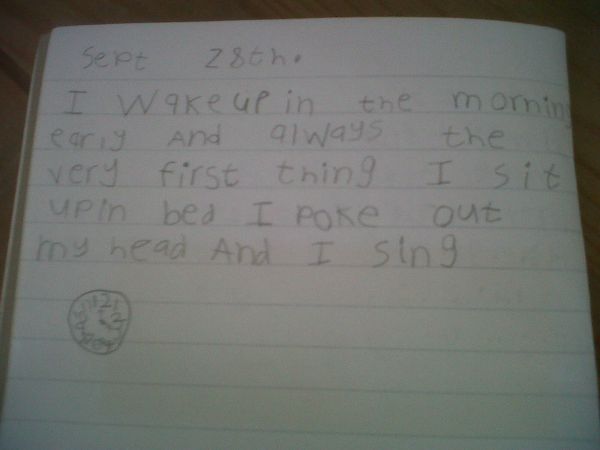 Sept 28th.
I wake up in the morning
early And always the
very first thing I sit
up in bed I poke out
my head And I sing
12 1